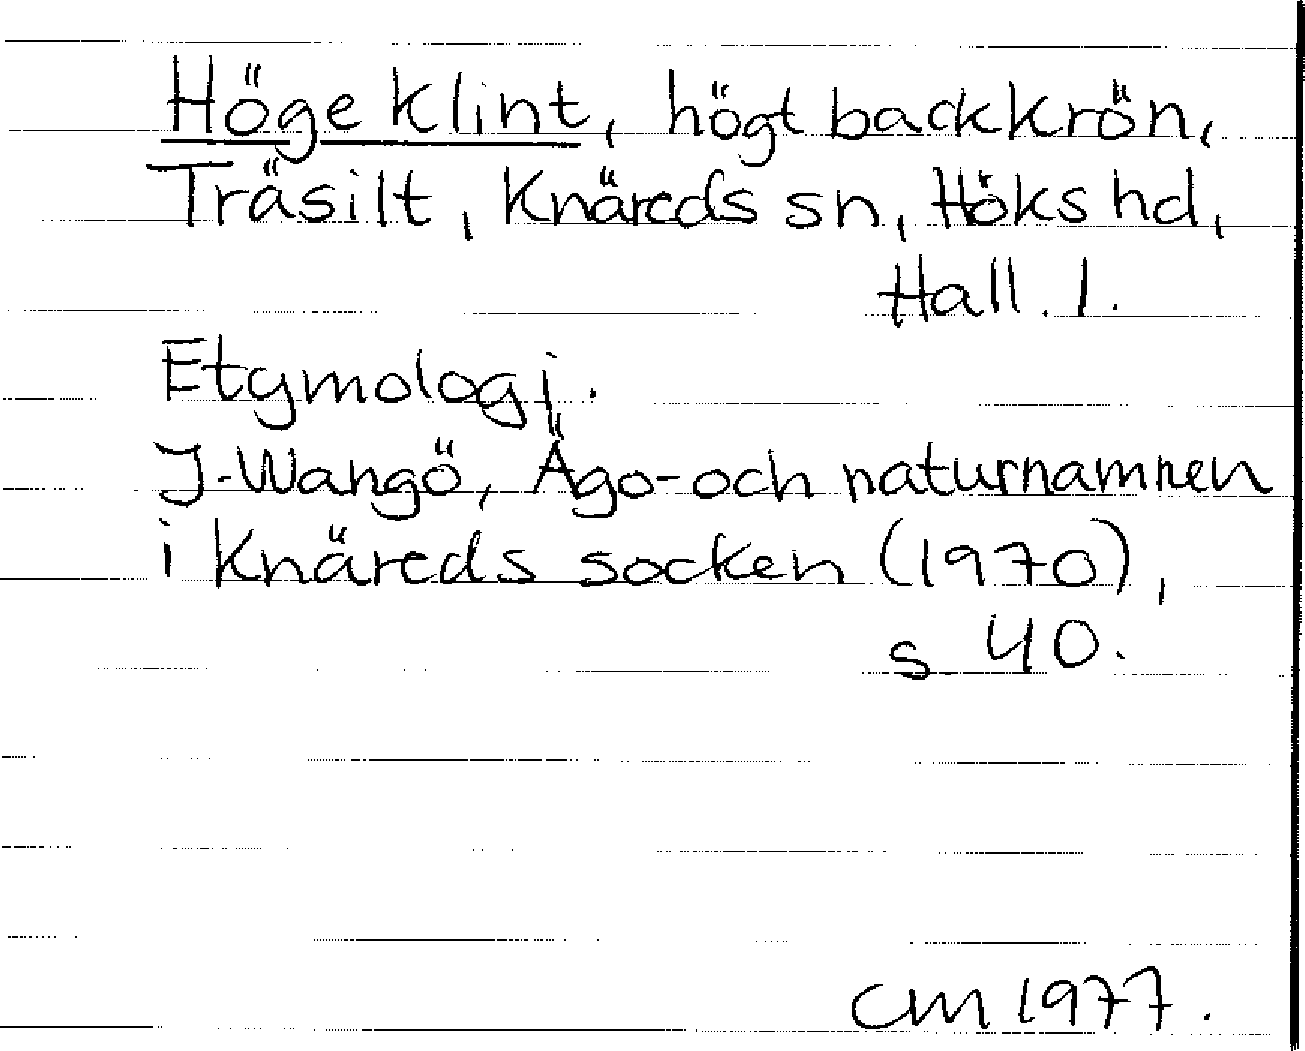 Höge klint, högt backkrön,
Träsilt, Knäreds sn, Höks hd,
Hall. l.
Etymologi.
J. Wangö, Ägo- och naturnamnen
i Knäreds socken (1970),
s 40.
CM 1977.